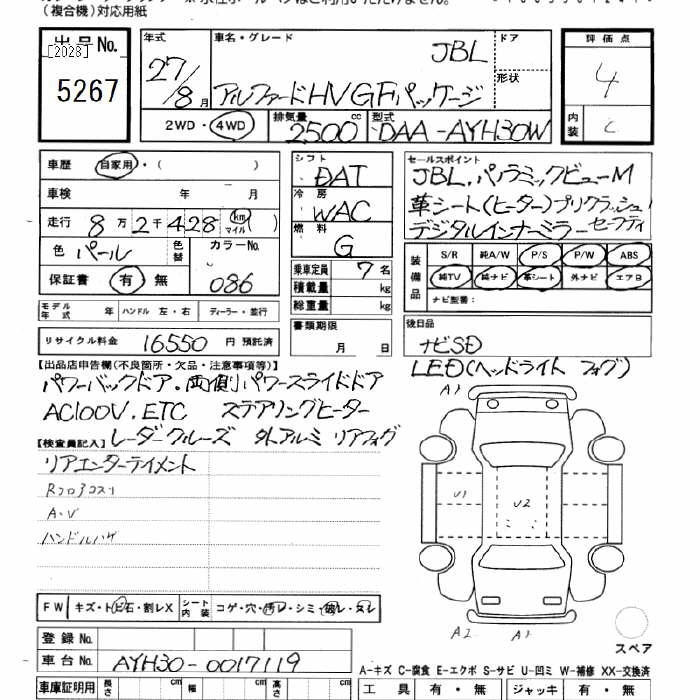 （複合機）対応用紙
出品No.
[2028]
5267
年式
27/8月
車名・グレード
JBL
アルファードHV GFパッケージ
ドア
形状
評価点
4
内装
C
2WD・4WD
排気量
2500 cc
型式
DAA-AYH30W
車歴 自家用・（ ）
車検 年 月
走行 8万2千428 （km マイル）
色 パール
色替
カラーNo.
086
保証書 有・無
シフト
DAT
冷房
WAC
燃料
G
乗車定員 7名
積載量 kg
総重量 kg
書類期限
月 日
セールスポイント
JBL.パノラミックビューM
革シート(ヒーター)プリクラッシュ
デジタルインナーミラー セーフティ
装備品
S/R 純A/W P/S P/W ABS
純TV 純ナビ 革シート 外ナビ エアB
ナビ型番：
モデル年式 年 ハンドル 左・右 ディーラー・並行
リサイクル料金 16550 円 預託済
後日品
ナビSD
LED(ヘッドライト フォグ)
【出品店申告欄(不良箇所・欠品・注意事項等)】
パワーバックドア.両側パワースライドドア
AC100V.ETC ステアリングヒーター
レーダークルーズ 外アルミ リアフォグ
【検査員記入】
リアエンターテイメント
A・V
ハンドルハゲ
A1
U1
U2
A2
A1
スペア
FW キズ・トビ石・割レX
シート内装 コゲ・穴・汚レ・シミ・破レ・スレ
登録No.
車台No. AYH30-0017119
車庫証明用 長さ cm 幅 cm 高さ cm
A-キズ C-腐食 E-エクボ S-サビ U-凹ミ W-補修 XX-交換済
工具 有・無 ジャッキ 有・無